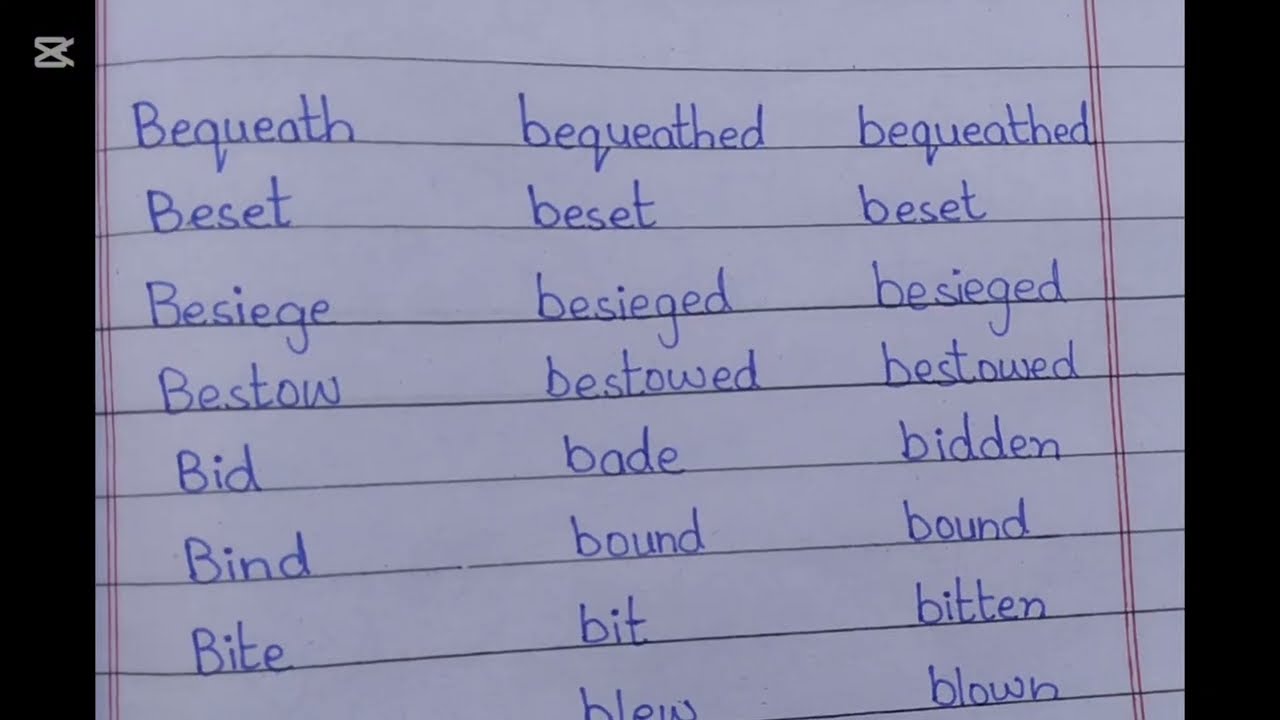 Bequeath bequeathed bequeathed
Beset beset beset
Besiege besieged besieged
Bestow bestowed bestowed
Bid bade bidden
Bind bound bound
Bite bit bitten
blew blown